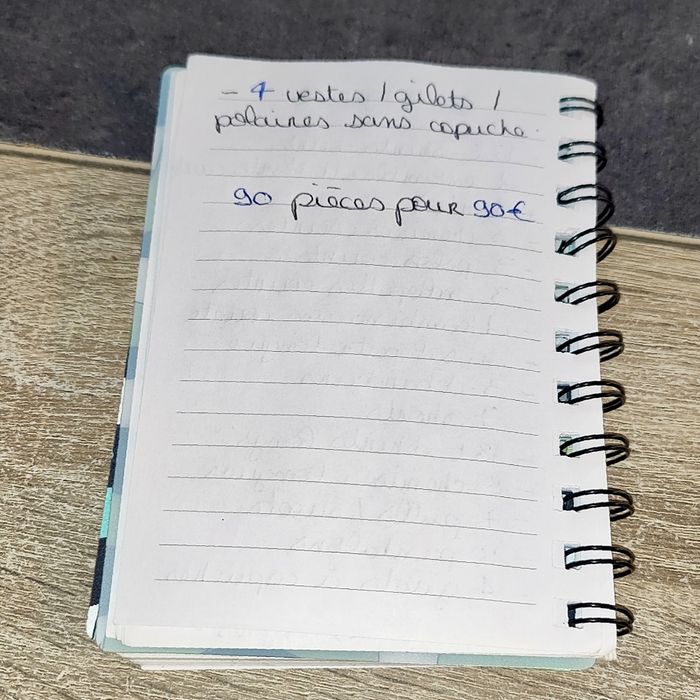 - 4 vestes / gilets /
polaires sans capuche.
90 pièces pour 90€